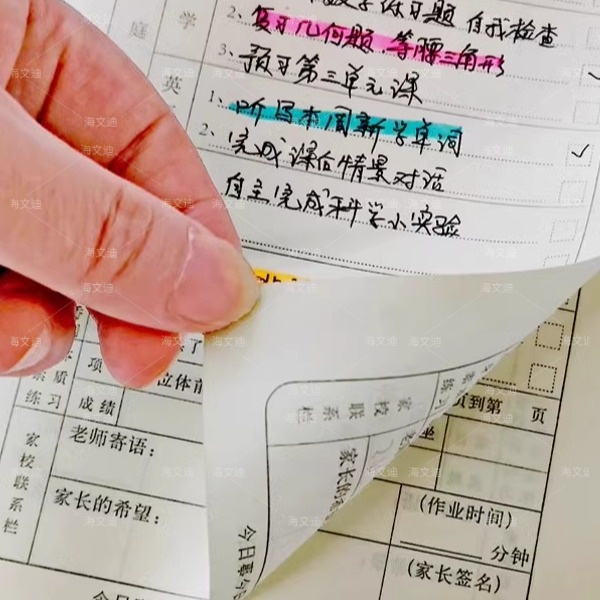 练习题 自我检查
庭 学
2、复习几何题 等腰三角形
3、预习第三单元课
英
1、听写本周新学单词
2、完成课后情景对话
自主完成科学小实验
项
立体
素质
练习
成绩
到第 页
家校联系栏
老师寄语：
家长的希望：
家校联系栏
家长的
今日
(作业时间)
分钟
(家长签名)
今日
海文迪